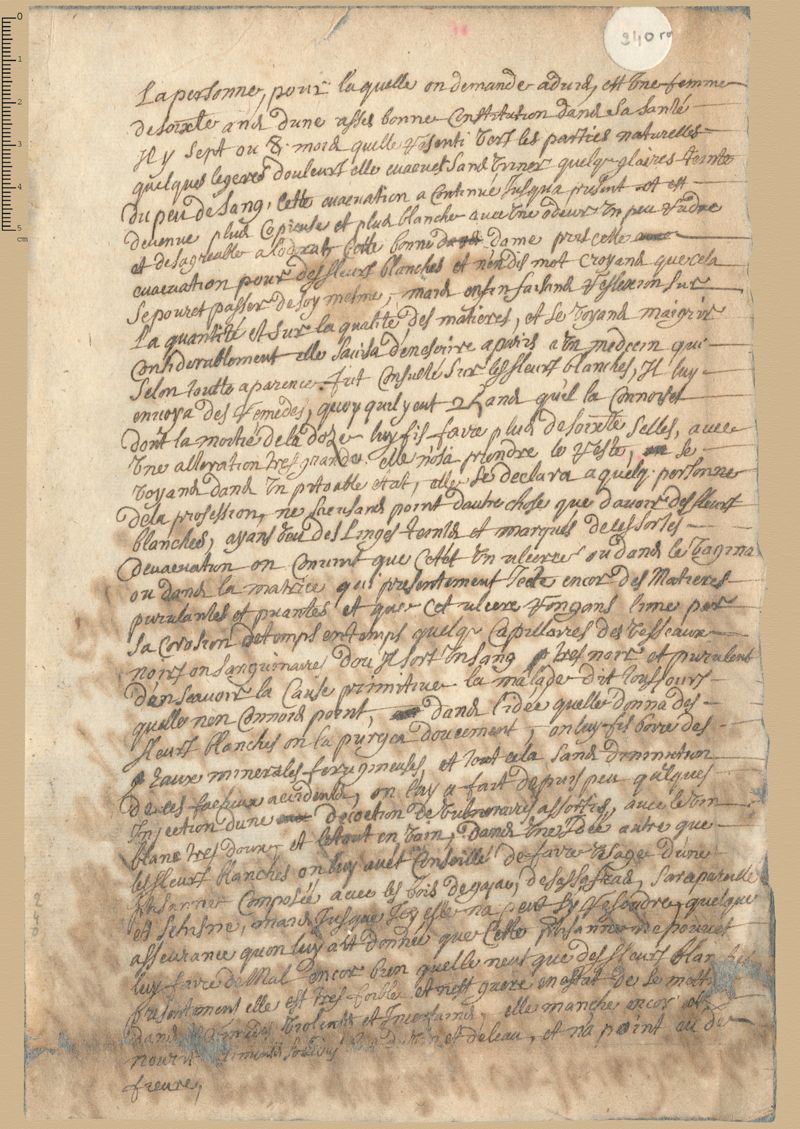 240 ro
La personne, pour laquelle on demande advis, est une femme
de soixte ans dune assés bonne Constitution dans sa santé
Il y sept ou 8. mois quelle ressenti vers les parties naturelles
quelques legeres douleurs elle evacuet sans uriner quelq. glaires teinte
du peu de sang, Cette evacuation a Continué Jusqua present et est
devenue plus Copieuse et plus blanche avec une odeur un peu rude
et desagreable a lodorat, Cette bonne dame prit cette
evacuation pour des fleurs blanches et nen dis mot croyant que cela
se pouret passer de soy mesme, mais enfin faisant reflexion sur
La quantité et sur la qualité des matieres, et se voyant maigrir
Considerablement elle savisa den escrire a paris a un medecin qui
selon toutte aparence fut Consulté sur les fleurs blanches, Il luy
envoya des remedes, quoy quil y eut 2 ans quil la Connoiset
dont la moitié de la doze luy fis faire plus de soixte selles, avec
une alteration tres grande. elle nosa prendre le reste, se
voyant dans un pitoable etat, elle se declara a quelq. personne
de la profession, ne sachant point dautre chose que davoir des fleurs
blanches, ayans veu des Linges teints et marqués de ces sortes
devacuation on Convint que Cetet un ulcerre ou dans le vagina
ou dans la matrice qui presentement Jette encor des Matieres
purulantes et puantes et que Cet ulcere rongans lime par
sa Corosion de temps en temps quelq. Capillaires des vesseaux
noirs ou sanguinaires dou Il sort un sang tres noir et purulent
den scavoir la Cause primitive la malade dit tousjours
quelle non Connois point, dans lidee quelle donna des
fleurs blanches on la purgea doucement, on luy fis boire des
eaux minerales ferugineuses, et tout cela sans diminution
de ces facheux accidents, on luy a fait depuis peu quelques
Injection dune decoction de vulneraires assortis, avec le vin
blanc tres doux, et le tout en vain, dans une Idée autre que
les fleurs blanches on luy avet Conseillé de faire usage dune
ptisanne Composée avec les bois de gayac, de sassafras, sarapareille
et schisne, mais Jusque Icy elle na peut sy resoudre, quelque
asseurance quon luy ait donnée que Cette ptisanne ne pouvet
luy faire de Mal encor bien quelle neut que des fleurs blanches
presentment elle est tres foible et nest guere en estat de se mettre
dans remedes violents et Incertains, elle manche encor et
nourit et deleau, et na point eu de
fievre,
240